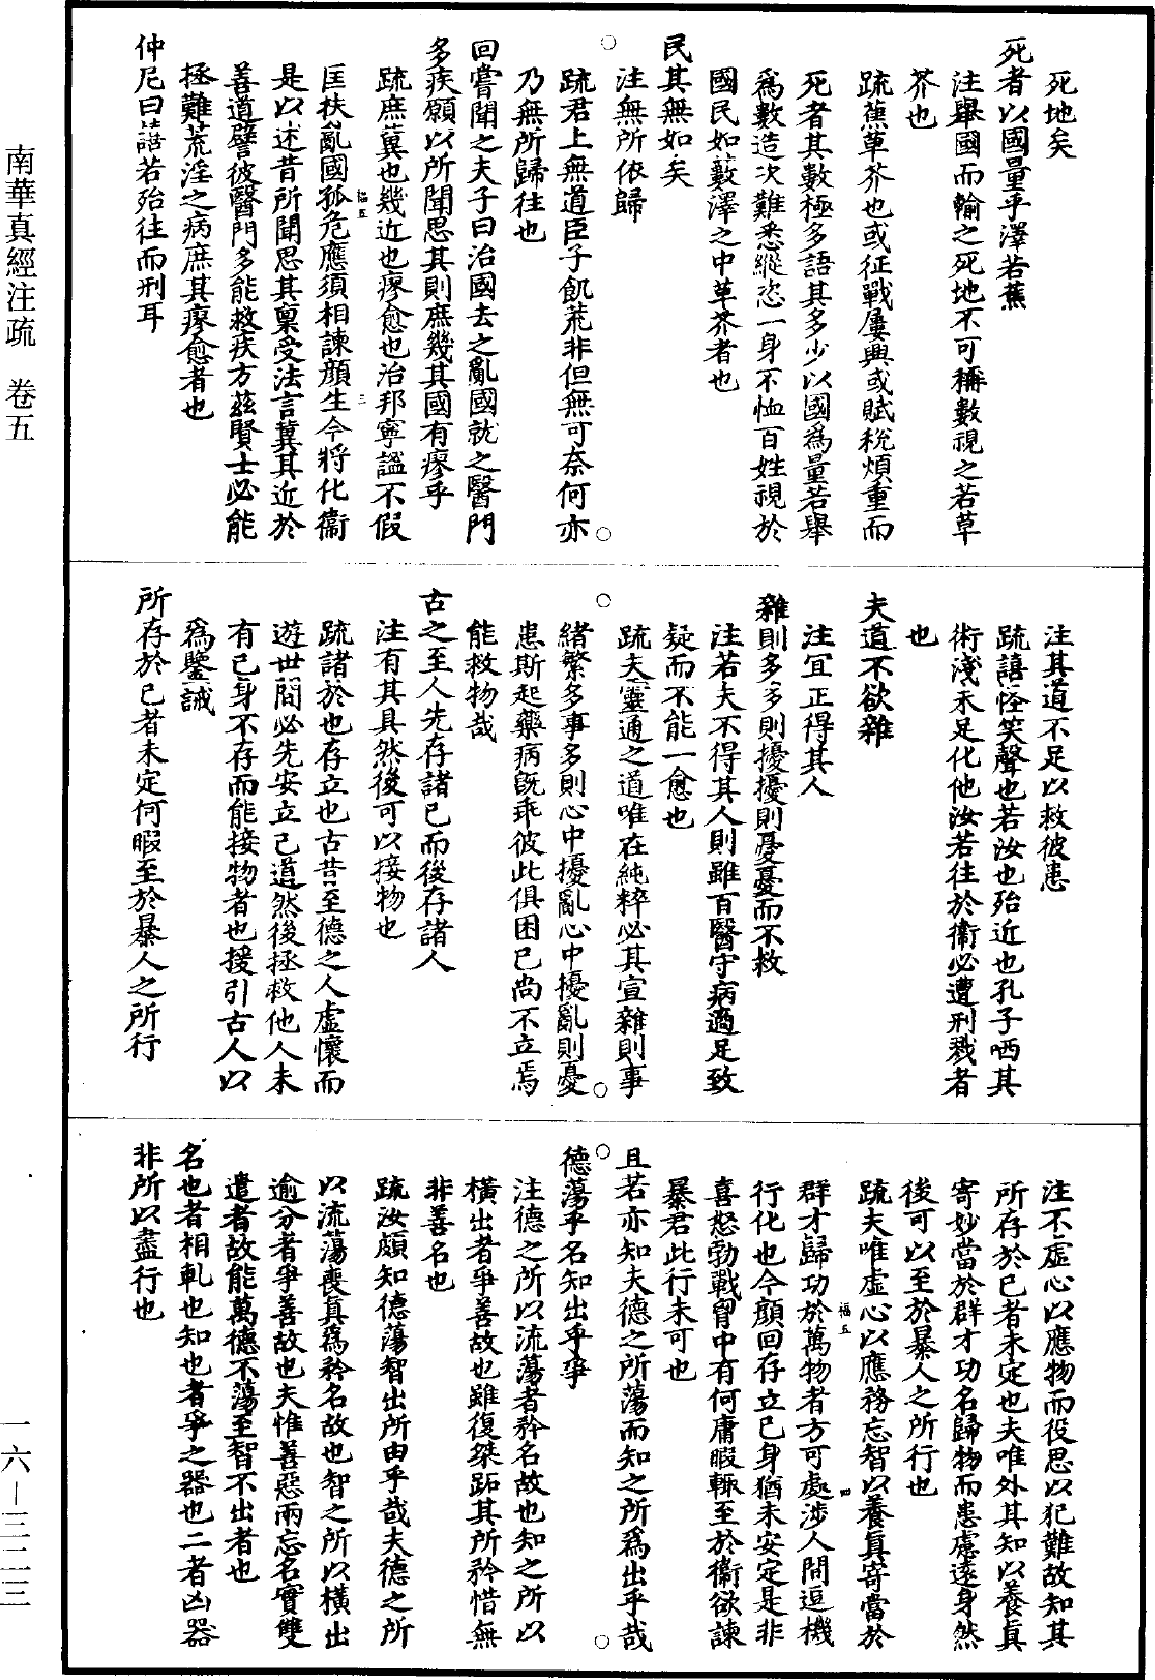 南華真經注疏　卷五
死地矣
死者以國量乎澤若蕉
注舉國而輸之死地不可稱數視之若草
芥也
疏蕉草芥也或征戰屢興或賦稅煩重而
死者其數極多語其多少以國爲量若舉
爲數造次難悉縱恣一身不恤百姓視於
國民如藪澤之中草芥者也
民其無如矣
注無所依歸
疏君上無道臣子飢荒非但無可奈何亦
乃無所歸往也
回嘗聞之夫子曰治國去之亂國就之醫門
多疾願以所聞思其則庶幾其國有瘳乎
疏庶冀也幾近也瘳愈也治邦寧謐不假
匡扶亂國孤危應須相諫顏生今將化衞
是以述昔所聞思其稟受法言冀其近於
善道譬彼醫門多能救疾方茲賢士必能
拯難荒淫之病庶其瘳愈者也
仲尼曰譆若殆往而刑耳
注其道不足以救彼患
疏譆怪笑聲也若汝也殆近也孔子哂其
術淺未足化他汝若往於衞必遭刑戮者
也
夫道不欲雜
注宜正得其人
雜則多多則擾擾則憂憂而不救
注若夫不得其人則雖百醫守病適足致
疑而不能一愈也
疏夫靈通之道唯在純粹必其宣雜則事
緒繁多事多則心中擾亂心中擾亂則憂
患斯起藥病既乖彼此俱困已尚不立焉
能救物哉
古之至人先存諸已而後存諸人
注有其具然後可以接物也
疏諸於也存立也古昔至德之人虛懷而
遊世間必先安立己道然後拯救他人未
有已身不存而能接物者也援引古人以
爲鑒誡
所存於已者未定何暇至於暴人之所行
注不虛心以應物而役思以犯難故知其
所存於已者未定也夫唯外其知以養真
寄妙當於群才功名歸物而患慮遠身然
後可以至於暴人之所行也
疏夫唯虛心以應務忘智以養真寄當於
群才歸功於萬物者方可處涉人間逗機
行化也今顏回存立已身猶未安定是非
喜怒勃戰胷中有何庸暇輒至於衞欲諫
暴君此行未可也
且若亦知夫德之所蕩而知之所爲出乎哉
德蕩乎名知出乎爭
注德之所以流蕩者矜名故也知之所以
橫出者爭善故也雖復桀跖其所矜惜無
非善名也
疏汝頗知德蕩智出所由乎哉夫德之所
以流蕩喪真爲矜名故也智之所以橫出
逾分者爭善故也夫惟善惡兩忘名實雙
遣者故能萬德不蕩至智不出者也
名也者相軋也知也者爭之器也二者凶器
非所以盡行也
福五
三
福五
四
一六—三二三